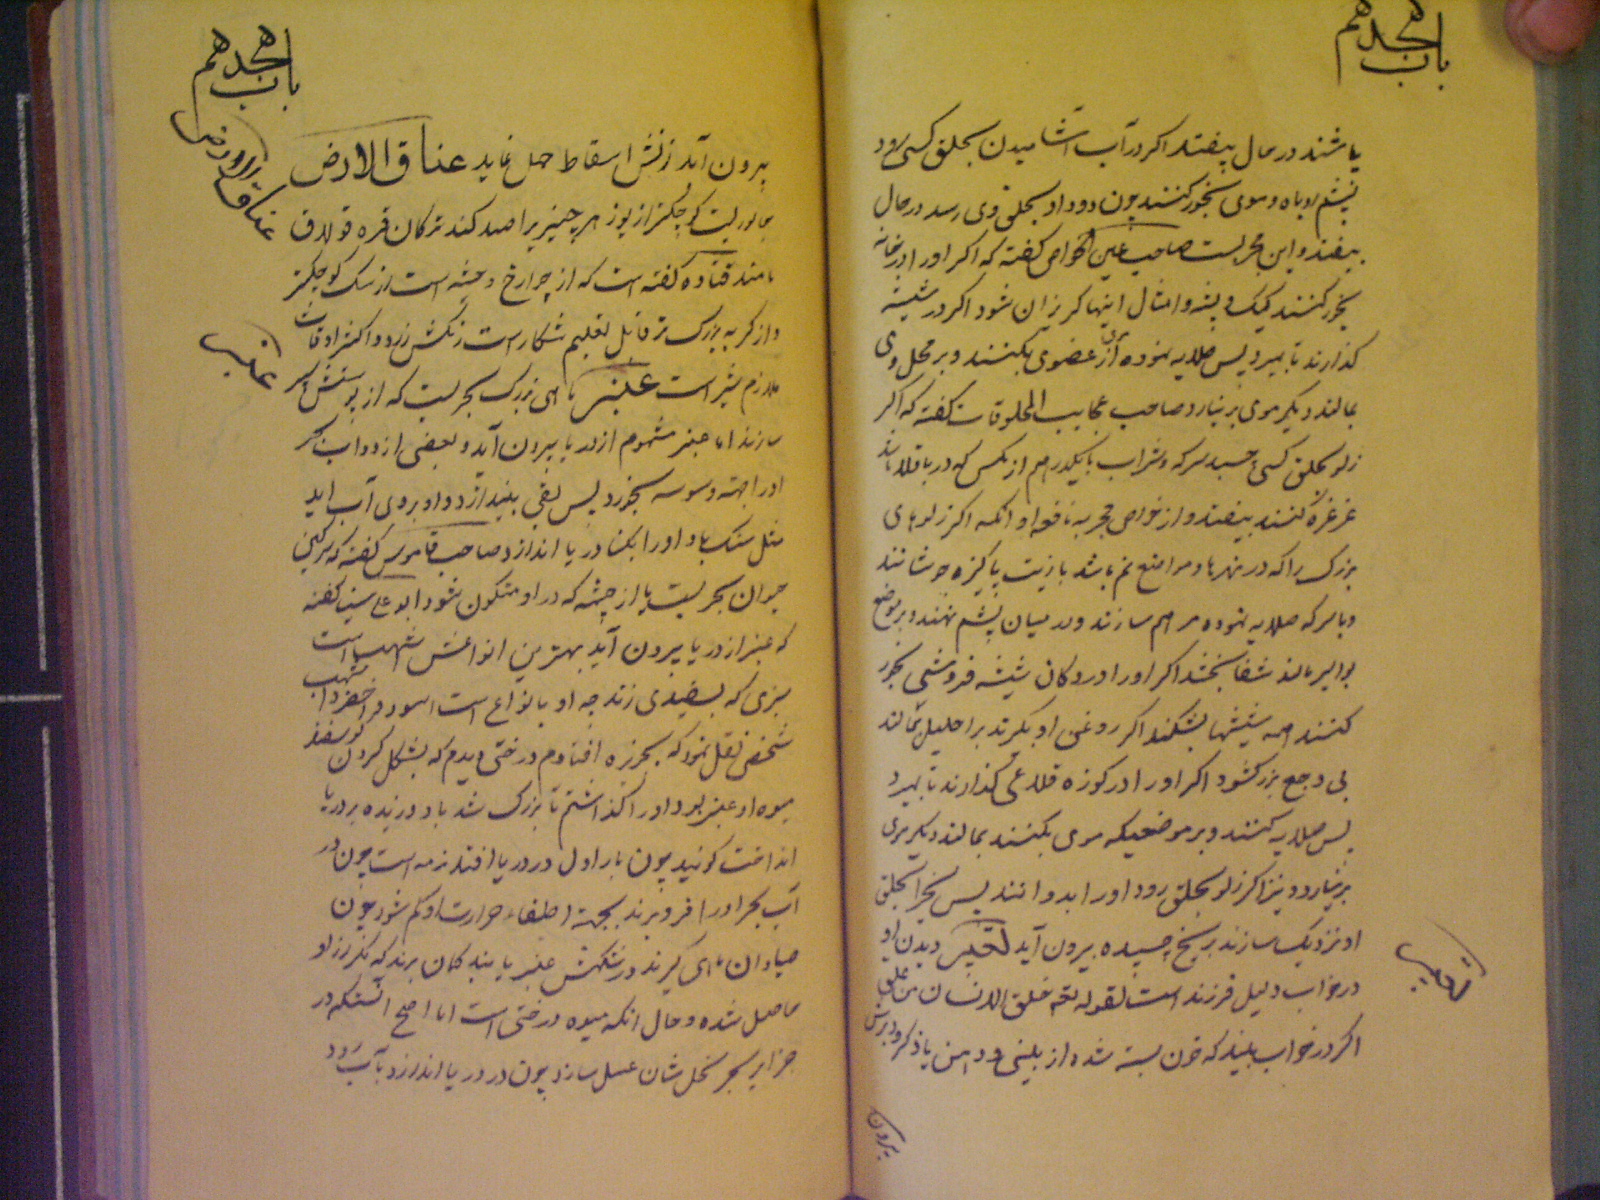 باب هجدهم
باشند در حال بیفتد اکر در آب آشامیدن بحلق کسی رود
پشم روباه و موی بخور کنند چون دود او بحلق وی رسد در حال
بیفتد و این مجربست صاحب عین الخواص کفته که اکر او را در خانه
بخور کنند کیک و پشه و امثال اینها کریزان شود اکر در شیشه
کذارند تا بمیرد پس صلایه نموده از عضوی بکنند و بر محل وی
بمالند دیکر موی بر نیارد و صاحب عجایب المخلوقات کفته که اکر
زلو بحلق کسی چسبد سرکه و شراب با یکدرهم از مکس که در باقلا باشد
غرغره کنند بیفتد و از خواص مجربه نافعه او آنکه اکر زلوهای
بزرک را که در نهرها و مواضع نم باشد با زیت پاکیزه جوشانند
و با سرکه صلایه نموده مرهم سازند و در میان پشم نهند و بر موضع
بواسیر مالند شفا بخشد اکر او را در دکان شیشه فروشی بخور
کنند همه شیشها بشکند اکر روغن او بکیرند بر احلیل بمالند
بی وجع بزرک شود اکر او را در کوزه قلاعی کذارند تا بمیرد
پس صلایه کنند و بر موضعیکه موی بکنند بمالند دیکر موی
بر نیارد و نیز اکر زلو بحلق رود او را بدوانند پس یخ را بحلق
او نزدیک سازند بر یخ چسپیده بیرون آید تعبیر دیدن او
تعبیر
در خواب دلیل فرزند است لقوله تعه خلق الانسان من علق
اکر در خواب بیند که خون بسته شده از بینی و دهن یا ذکر و دبرش
بیرون
باب هجدهم
بیرون آید زنش اسقاط حمل نماید عناق الارض
عناق الارض
جانوریست کوچکتر از یوز هر چیزیرا صید کند ترکان قره قولاق
نامند قتاده کفته است که از جوارح وحشه است از سک کوچکتر
و از کربه بزرک تر قابل تعلیم شکار است رنکش زرد و اکثر اوقات
ملازم شیر است عنبر ماهی بزرک بحریست که از پوستش سپر
عنبر
سازند اما عنبر مشموم از دریا بیرون آید و بعضی از دواب بحر
او را جهته دسومه بخورد پس بقی بیندازد و او بروی آب آید
مثل سنک باد او را بکنار دریا اندازد صاحب قاموس کفته که سرکین
حیوان بحریست یا از چشمه که در او متکون شود ابو علی سینا کفته
که عنبر از دریا بیرون آید بهترین انواعش اشهب است
سبزی که بسفیدی زند چه او بانواع است اسود و اخضر و اشهب
شخصی نقل نمود که بجزیره افتادم درختی دیدم که بشکل کردن کوسفند
میوه او عنبر بود او را کذاشتم تا بزرک شد باد وزیده بدریا
انداخت کونید چون بار اول در دریا افتد نرمه است چون در
آب بحر او را فرو برند بجهة اطفاء حرارت او کم شود چون
صیادان ماهی کیرند در شکمش عنبر یابند کمان برند که مکر از او
حاصل شده و حال آنکه میوه درختی است اما اصح آنستکه در
جزایر بحر نحل شان عسل سازد چون در دریا اندازد بآب رود